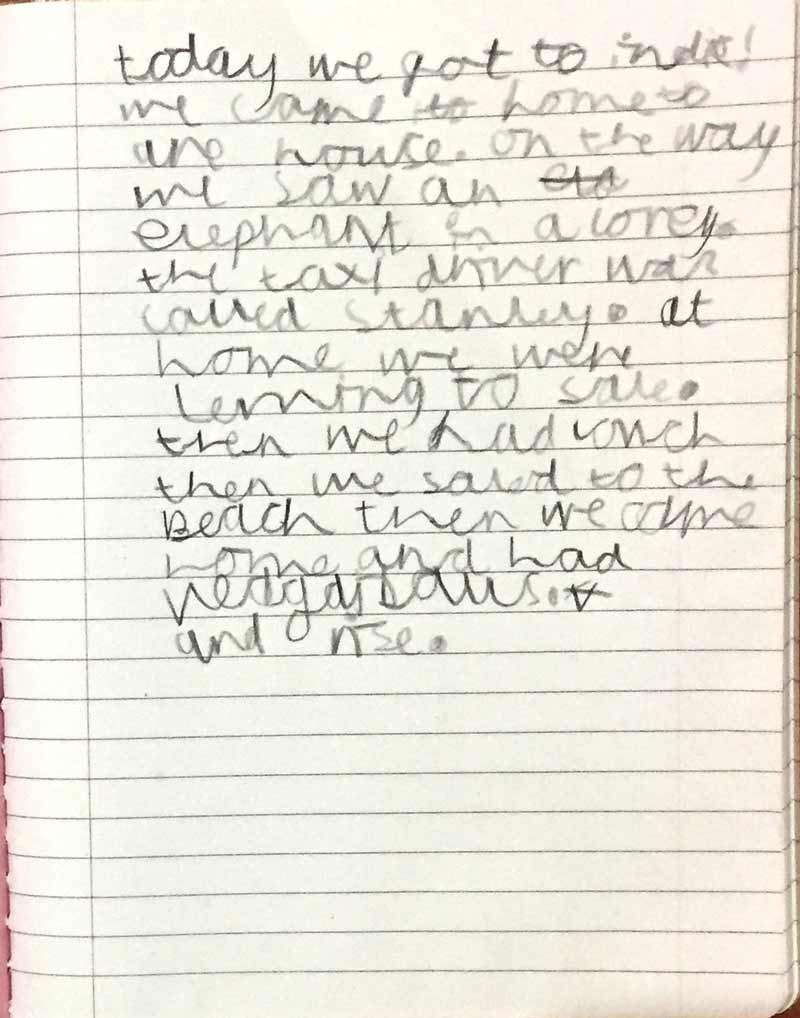 today we got to india!
we came to home to
are house. on the way
we saw an
elephant in a lorey.
the taxi driver was
called stanley. at
home we were
lerning to sale.
then we had lonch
then we saled to the
Beach then we came
home and had
vedgarballs.
and rise.